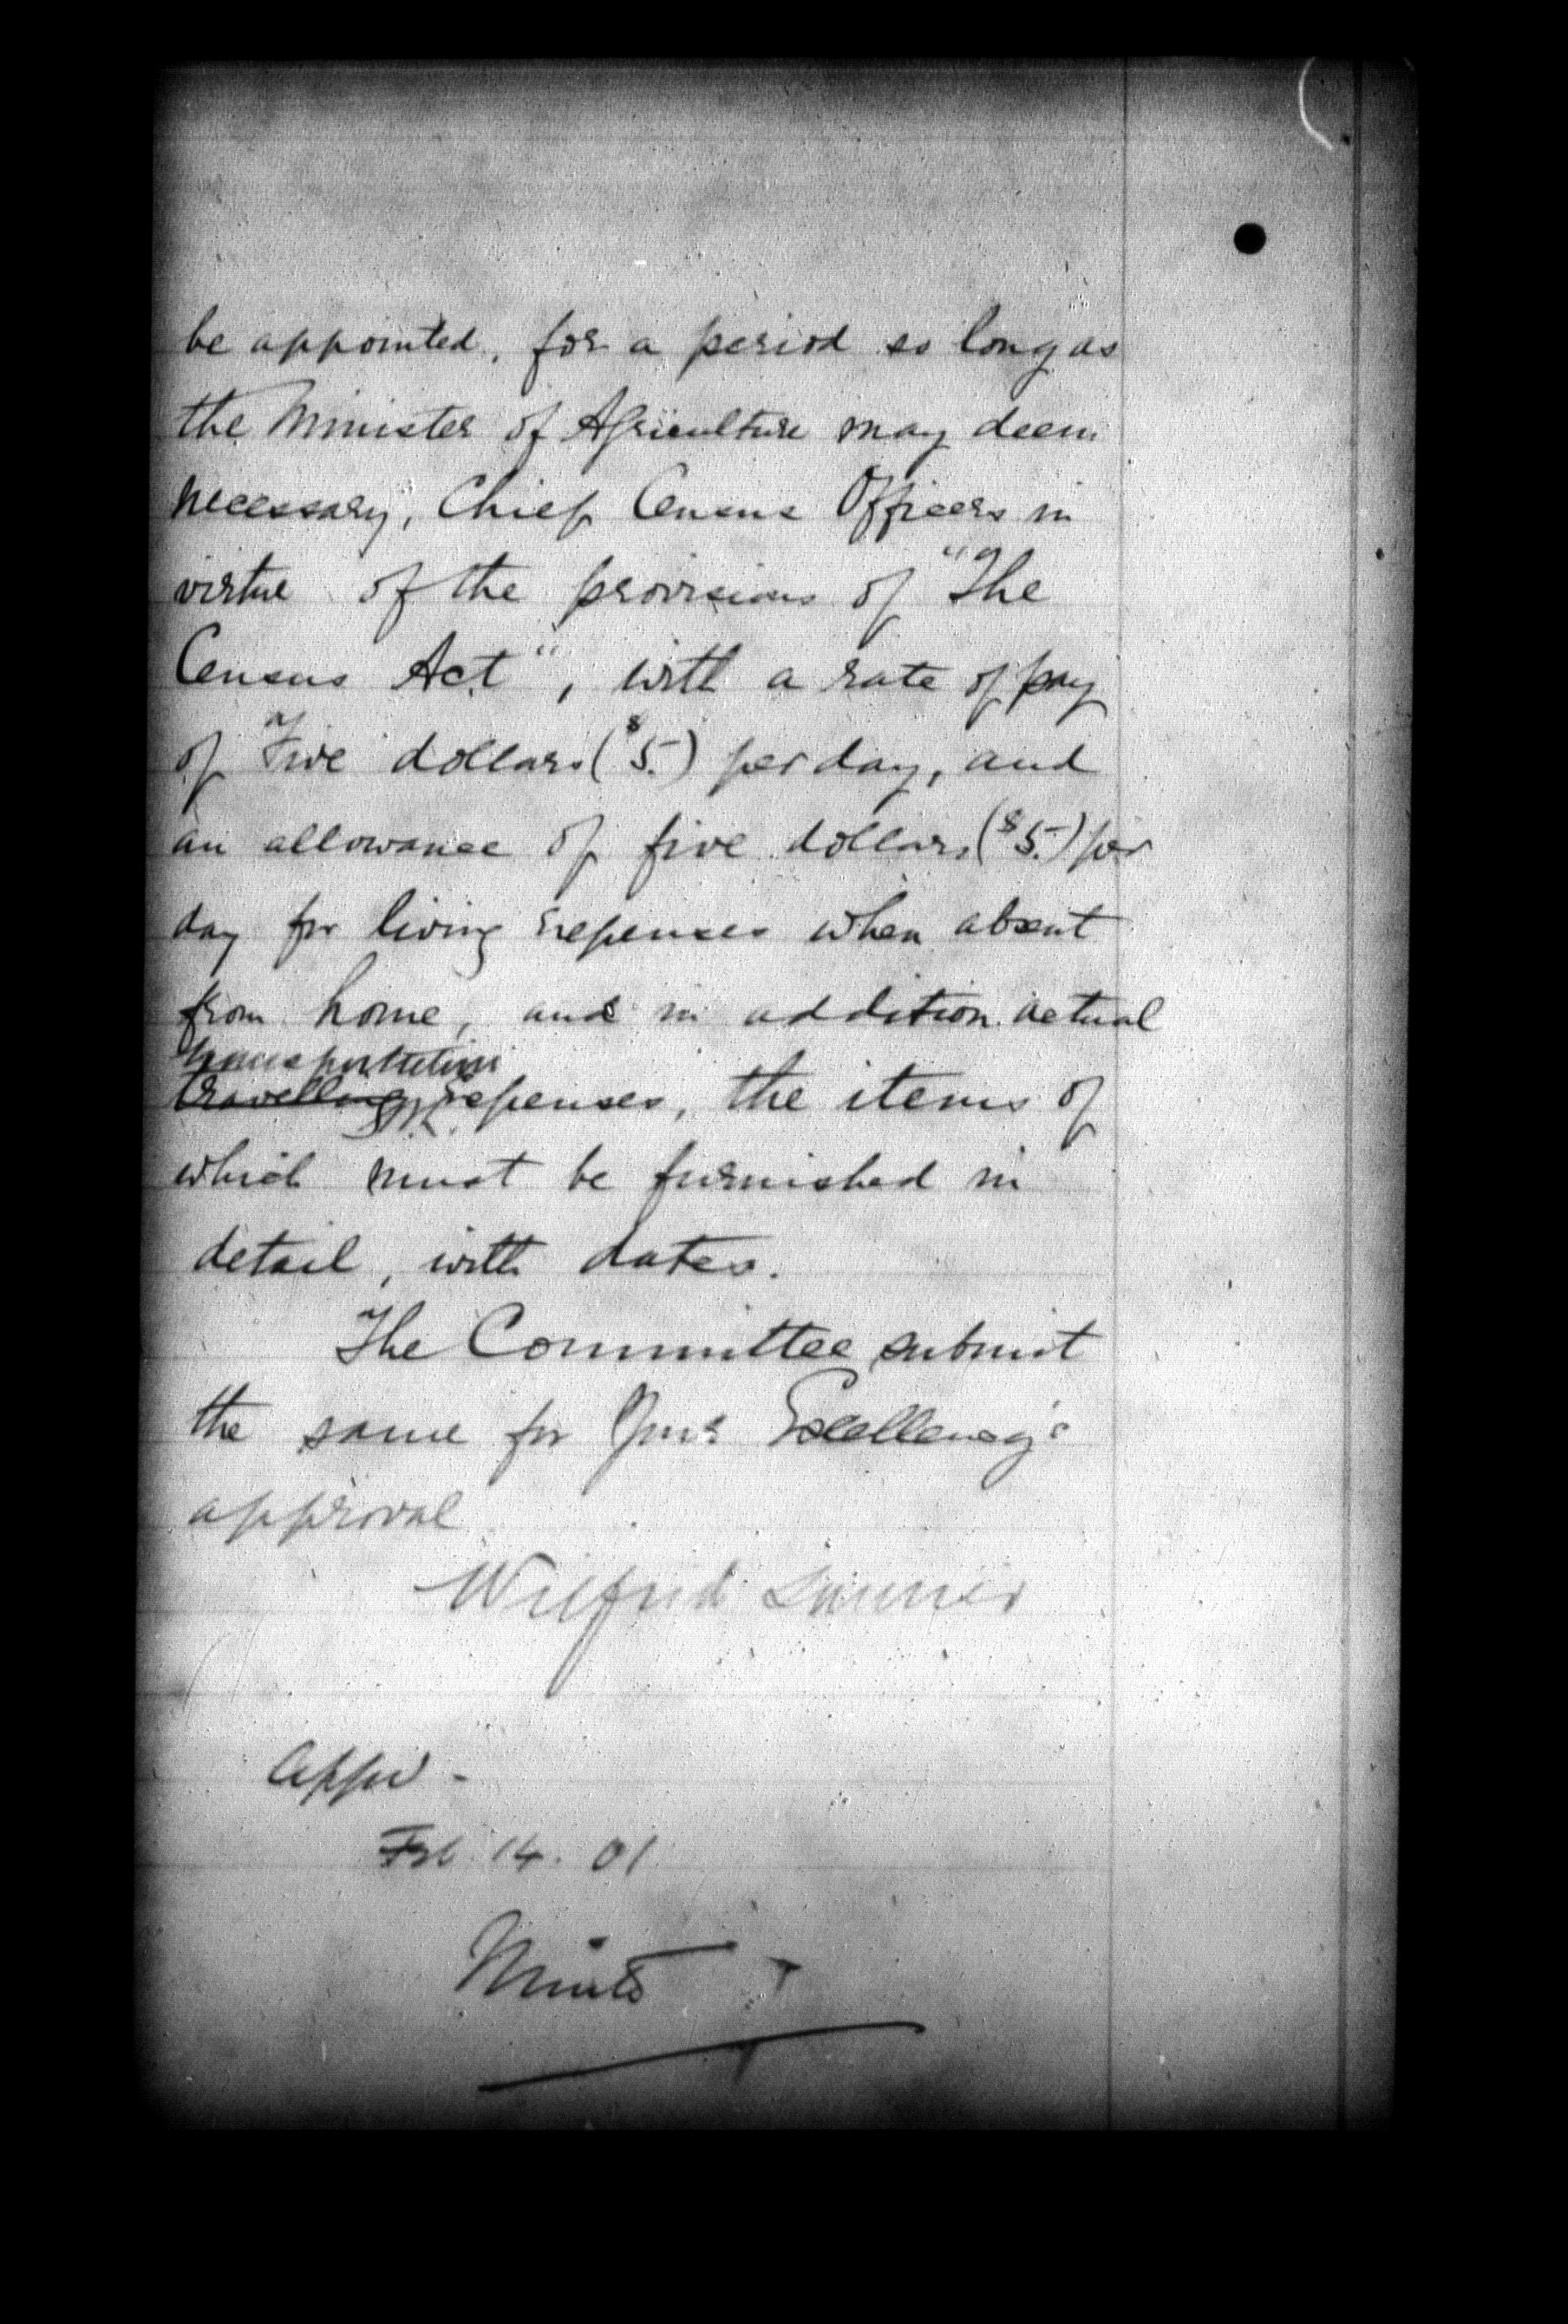 be appointed, for a period so long as
the Minister of Agriculture may deem
necessary, Chief Census Officers in
virtue of the provisions of "The
Census Act", with a rate of pay
of Five dollars ($5.) per day, and
an allowance of five dollars ($5.) per
day for living expenses when absent
from home, and in addition actual
transportation
travelling expenses, the items of
which must be furnished in
detail, with dates.
The Committee submit
the same for Your Excellency's
approval
Wilfrid Laurier
Appd -
Feb. 14. 01
Minto